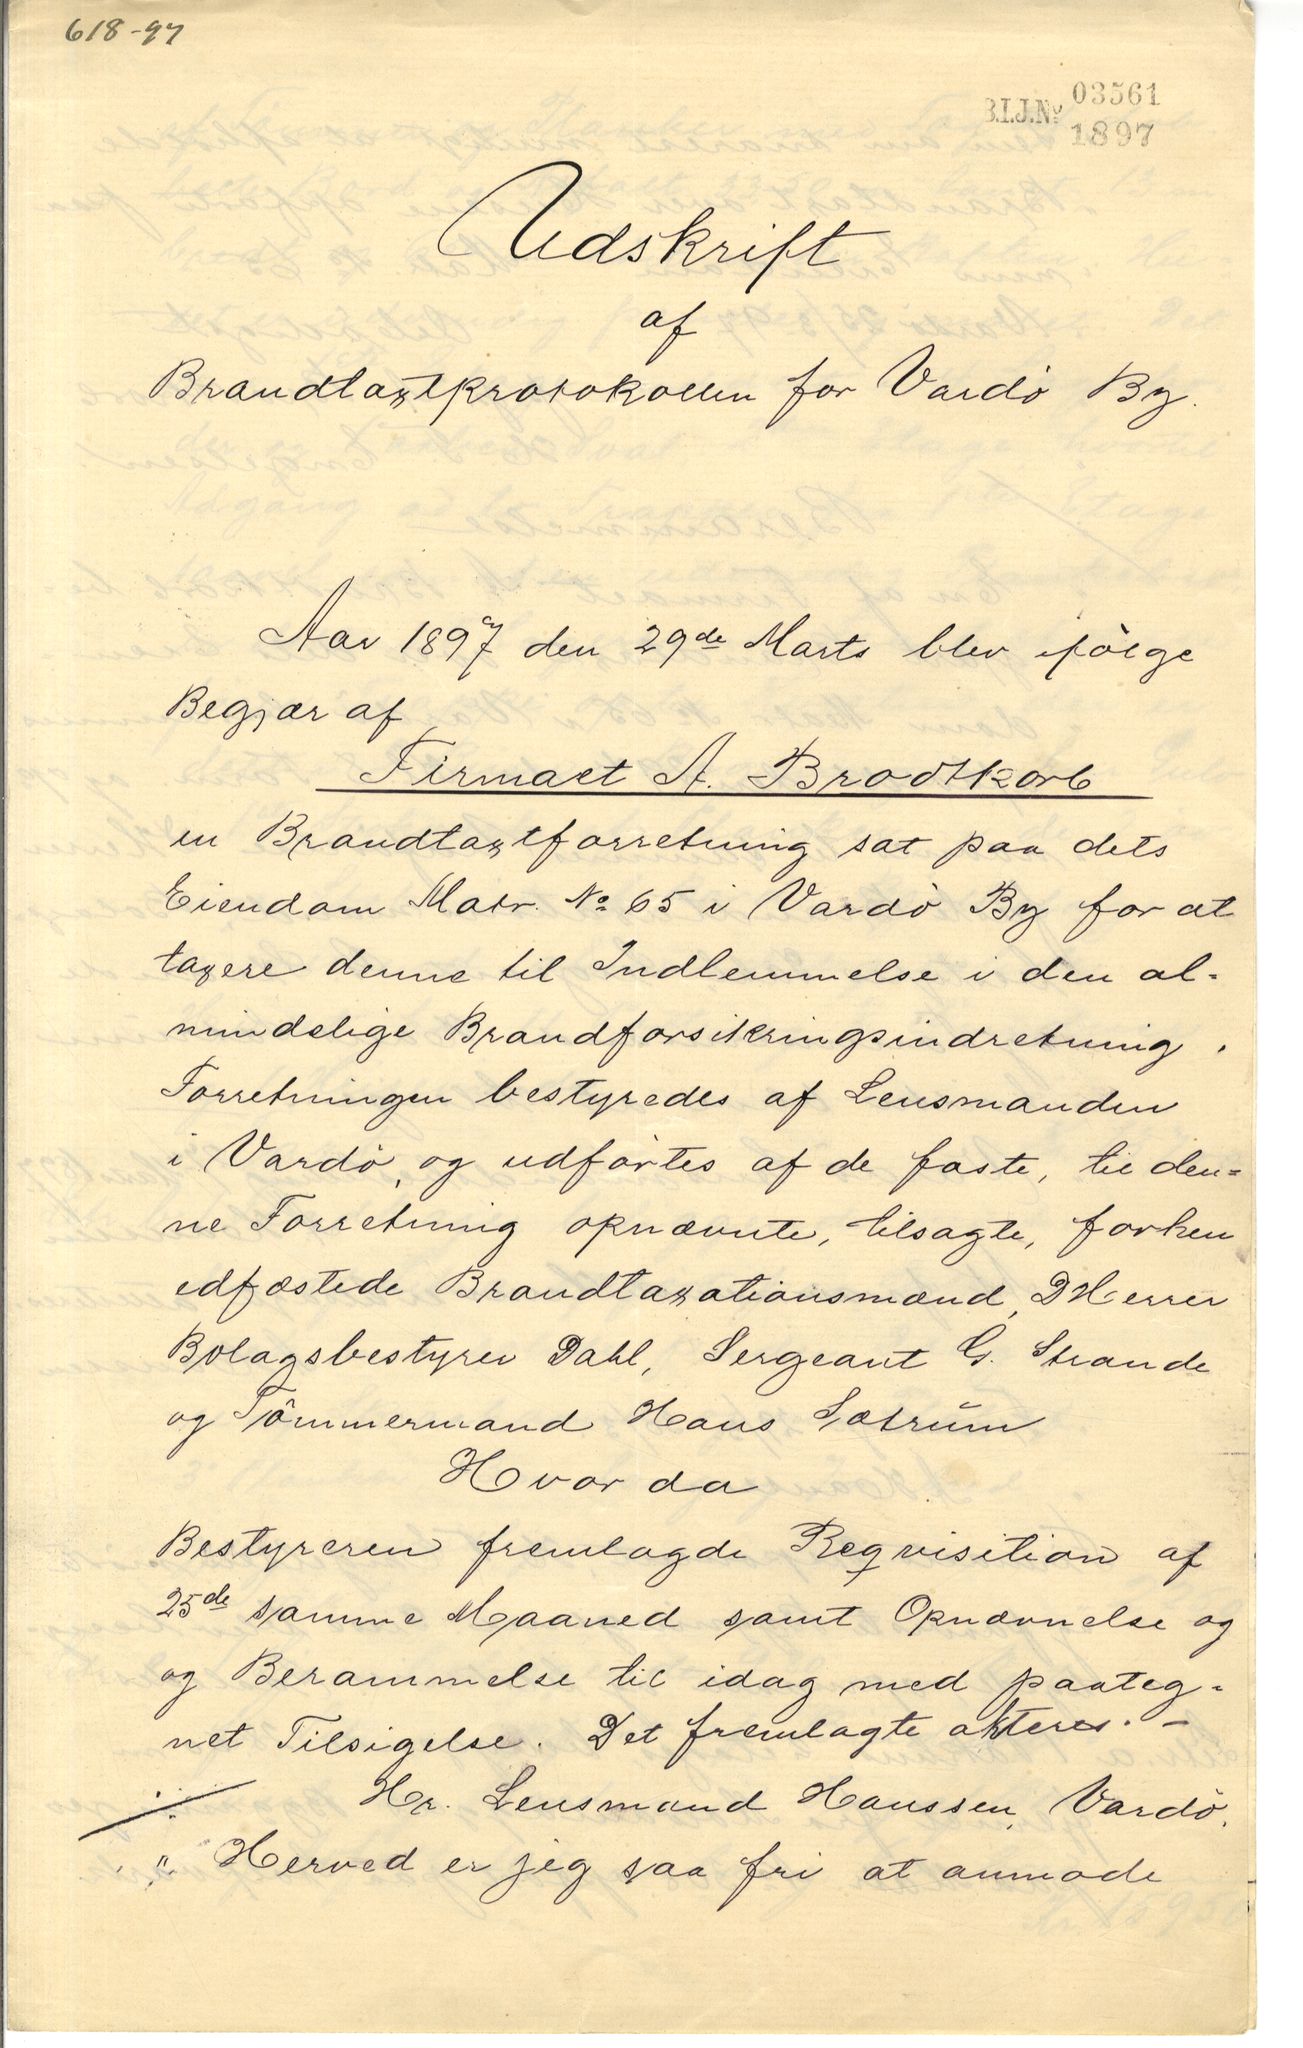 618-97
B.I.J.No 03561
1897
Udskrift
af
Brandtaxtprotokollen for Vardö By.
Aar 1897 den 29de Marts blev ifölge
Begjær af
Firmaet A. Brodtkorb
en Brandtaxtforretning sat paa dets
Eiendom Matr. No 65 i Vardö By for at
taxere denne til Indlemmelse i den al-
mindelige Brandforsikringsindretning.
Forretningen bestyredes af Lensmanden
i Vardö, og udförtes af de faste, til den=
ne Forretning opnævnte, tilsagte, forhen
edfæstede Brandtaxationsmænd, DHerrer
Bolagsbestyrer Dahl, Sergeant G. Strande
og Tömmermand Hans Sætrum
Hvor da
Bestyreren fremlagde Reqvisition af
25de samme Maaned samt Opnævnelse og
og Berammelse til idag med paateg-
net Tilsigelse. Det fremlagte akteres. -
Hr. Lensmand Hanssen, Vardö.
„ Herved er jeg saa fri at anmode